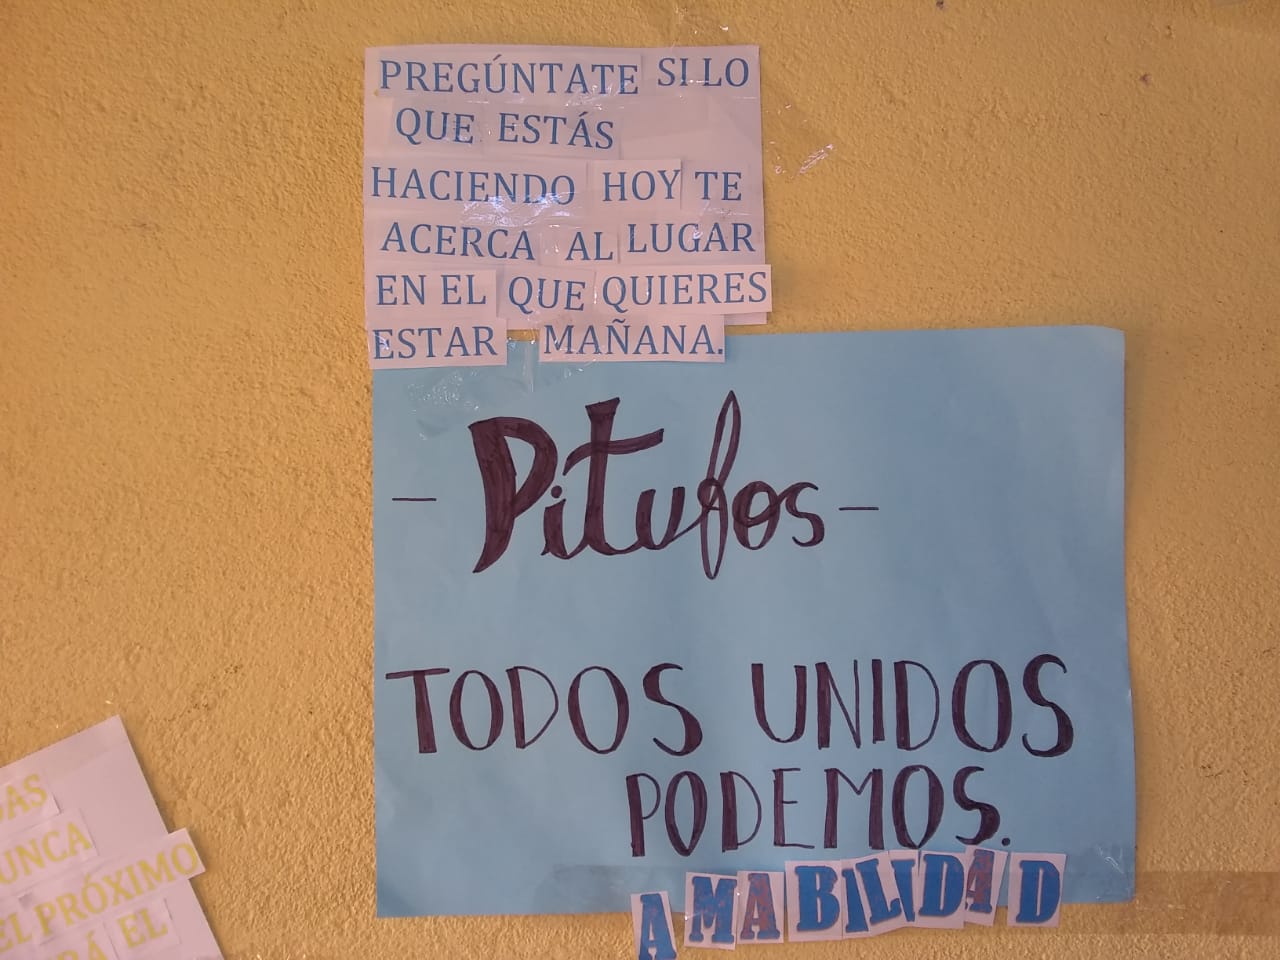 PREGÚNTATE SI LO
QUE ESTÁS
HACIENDO HOY TE
ACERCA AL LUGAR
EN EL QUE QUIERES
ESTAR MAÑANA.
- Pitufos -
TODOS UNIDOS
PODEMOS.
AMABILIDAD
EL PRÓXIMO
EL